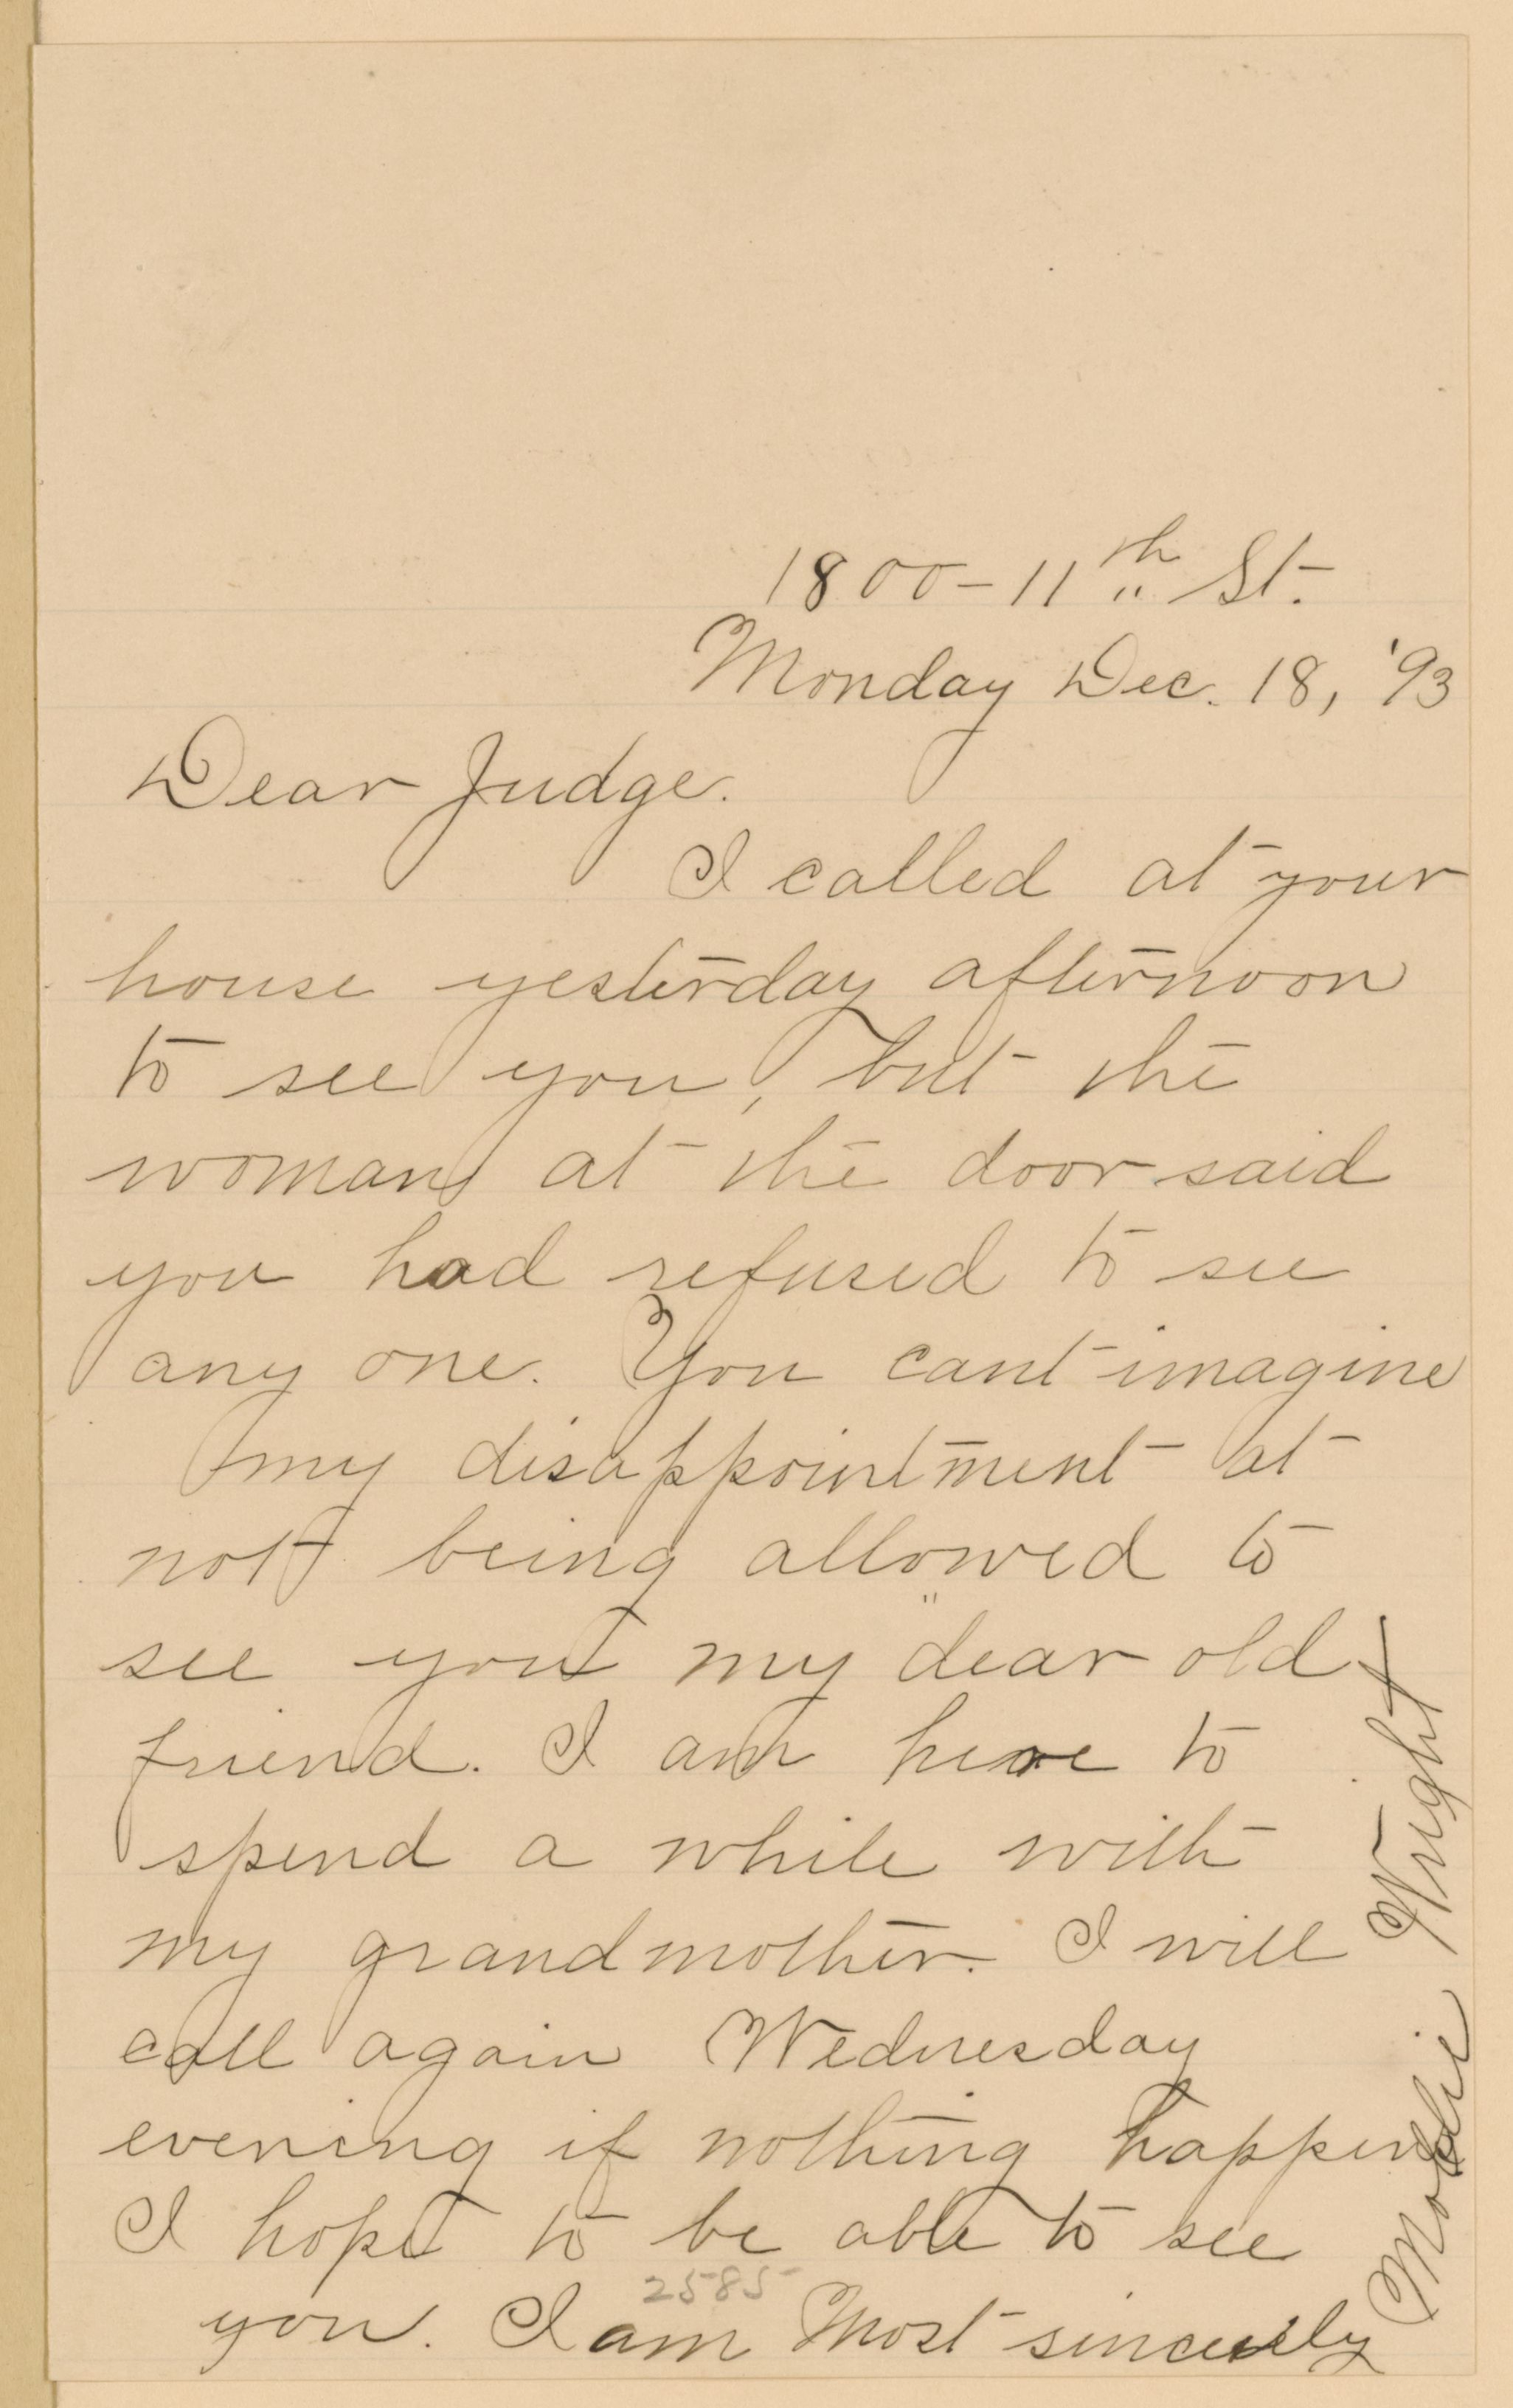 1800-11th St.
Monday Dec. 18, '93
Dear Judge.
I called at your
house yesterday afternoon
to see you, but the
woman at the door said
you had refused to see
any one. You cant imagine
my disappointment at
not being allowed to
see you my dear old
friend. I am here to
spend a while with
my grandmother. I will
call again Wednesday
evening if nothing happens
I hope to be able to see
2585
you. I am Most sincerely
Mollie Wright